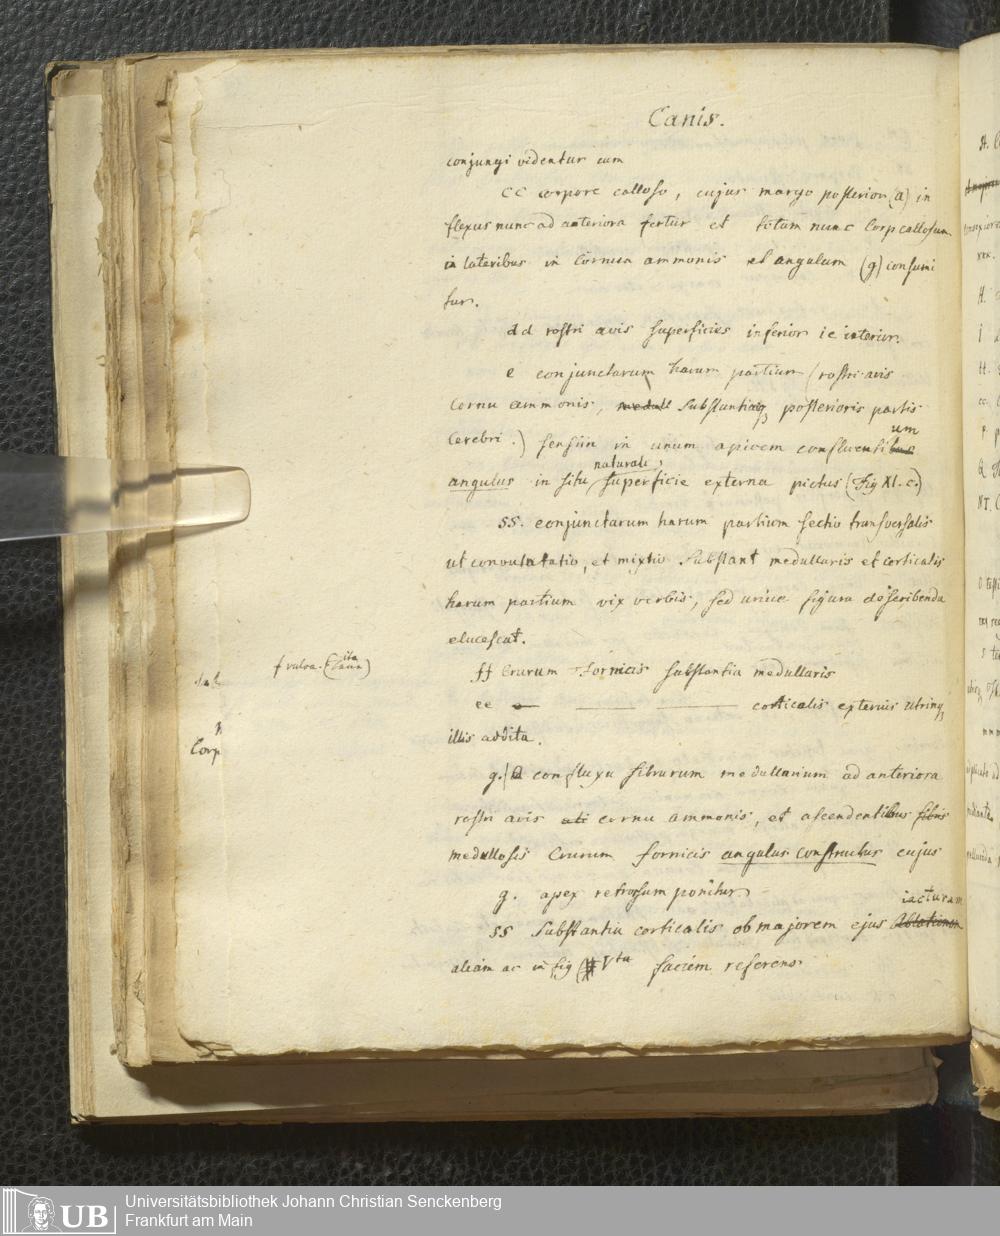 Canis.
conjungi videntur cum
CC corpore calloso, cujus margo posterior (a) in
flexus nunc ad anteriora fertur et totum nunc Corp callosum
in lateribus in Cornua ammonis et angulum (g) consumi
tur.
dd rostri avis superficies inferior ie interior.
e conjunctarum harum partium (rostri avis
Cornu ammonis, medull Substantiaeq posterioris partis
Cerebri.) sensim in unum apicem confluentibus um
angulus in situ naturali, superficie externa pictus (Fig XI. c.)
SS. conjunctarum harum partium sectio transversalis
ut convolutatio, et mixtio Substant medullaris et corticalis
harum partium vix verbis, sed unice figura describenda
elucescat.
f vulva. (Cann ita)
ff Crurum Fornicis substantia medullaris
ee corticalis exterius utrinq
illis addita.
Corp
g. confluxu fibrarum medullarium ad anteriora
rostri avis cornu ammonis, et ascendentibus fibris
medullosis Crurum fornicis angulus constructus cujus
g. apex retrorsum ponitur
SS Substantia corticalis ob majorem ejus Ablationem iacturam
aliam ac in fig Vta faciem referens
Universitätsbibliothek Johann Christian Senckenberg
Frankfurt am Main
UB